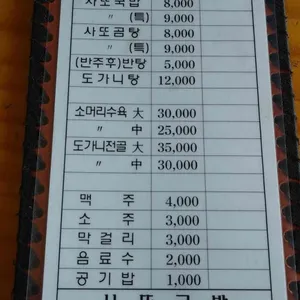 사또국밥 8,000
〃 (특) 9,000
사또곰탕 8,000
〃 (특) 9,000
(반주후)반탕 5,000
도가니탕 12,000
소머리수육 大 30,000
〃 中 25,000
도가니전골 大 35,000
〃 中 30,000
맥 주 4,000
소 주 3,000
막걸리 3,000
음료수 2,000
공기밥 1,000
사또국밥